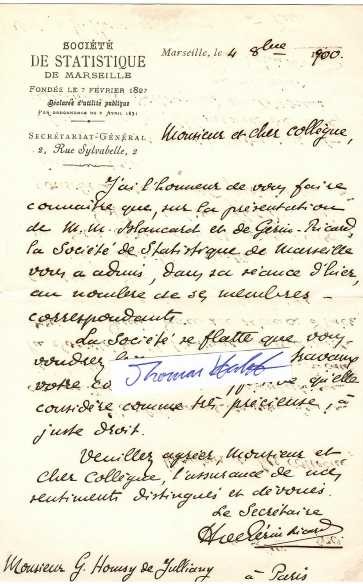 SOCIÉTÉ
DE STATISTIQUE
DE MARSEILLE
FONDÉE LE 7 FÉVRIER 1827
Déclarée d'utilité publique
PAR ORDONNANCE DU 7 AVRIL 1831
SECRÉTARIAT-GÉNÉRAL
2, Rue Sylvabelle, 2
Marseille, le 4 8bre 1900.
Monsieur et cher collègue,
J'ai l'honneur de vous faire
connaître que, sur la présentation
de M. M. Blancard et de Gérin-Ricard,
la Société de Statistique de Marseille
vous a admis, dans sa séance d'hier,
au nombre de ses membres
correspondants.
La Société se flatte que vous
voudrez
votre qu'elle
considère comme très précieuse, à
juste droit.
Veuillez agréer, Monsieur et
cher Collègue, l'assurance de mes
sentiments distingués et dévoués.
Le Secrétaire
H de Gérin Ricard
Monsieur G. Homsy de Julliany à Paris